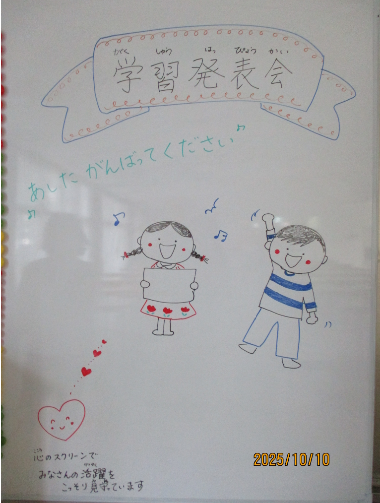 がく しゅう はっ ぴょう かい
学習発表会
あした がんばってください
心のスクリーンで
みなさんの活躍を
こっそり見守っています
2025/10/10